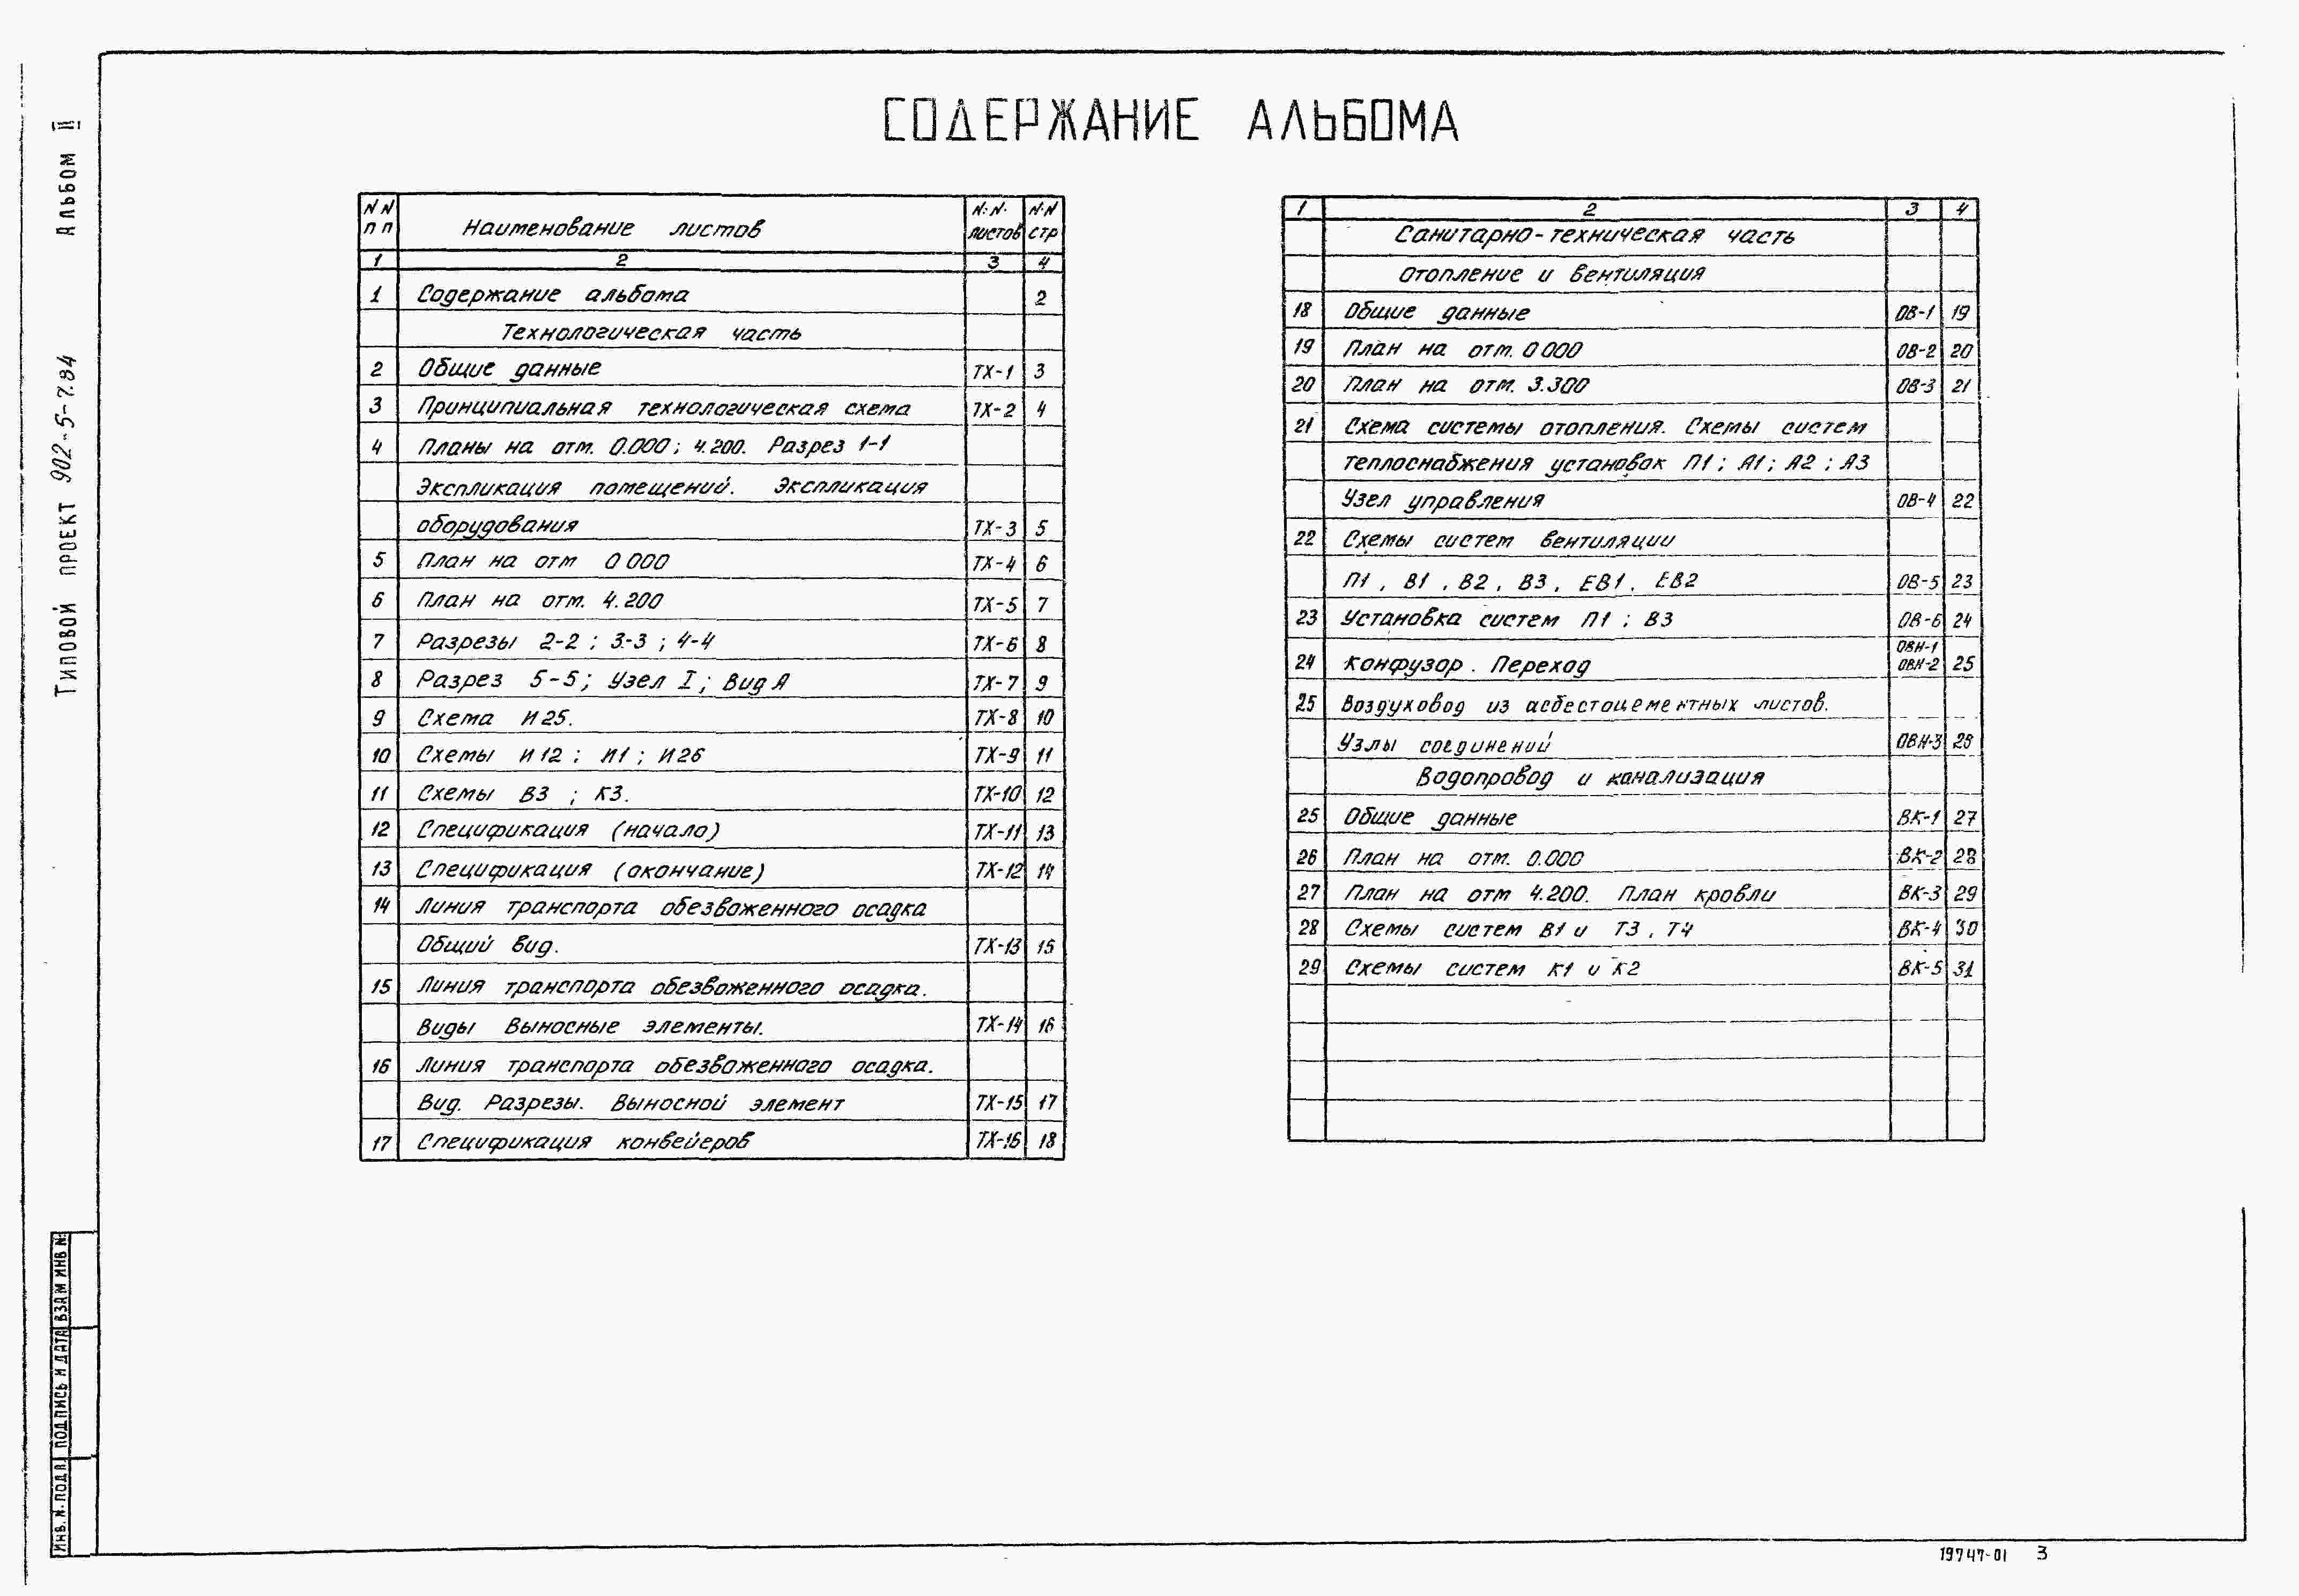 СОДЕРЖАНИЕ АЛЬБОМА
Типовой проект 902-5-7.84 Альбом II
NN пп Наименование листов N:N: листов N:N стр
1 2 3 4
1 Содержание альбома 2
Технологическая часть
2 Общие данные ТХ-1 3
3 Принципиальная технологическая схема ТХ-2 4
4 Планы на отм. 0.000; 4.200. Разрез 1-1
Экспликация помещений. Экспликация
оборудования ТХ-3 5
5 План на отм 0 000 ТХ-4 6
6 План на отм. 4.200 ТХ-5 7
7 Разрезы 2-2; 3-3; 4-4 ТХ-6 8
8 Разрез 5-5; Узел I; Вид А ТХ-7 9
9 Схема И25. ТХ-8 10
10 Схемы И12; И1; И26 ТХ-9 11
11 Схемы В3; К3. ТХ-10 12
12 Спецификация (начало) ТХ-11 13
13 Спецификация (окончание) ТХ-12 14
14 Линия транспорта обезвоженного осадка
Общий вид. ТХ-13 15
15 Линия транспорта обезвоженного осадка.
Виды Выносные элементы. ТХ-14 16
16 Линия транспорта обезвоженного осадка.
Вид. Разрезы. Выносной элемент ТХ-15 17
17 Спецификация конвейеров ТХ-16 18
1 2 3 4
Санитарно-техническая часть
Отопление и вентиляция
18 Общие данные ОВ-1 19
19 План на отм. 0 000 ОВ-2 20
20 План на отм. 3.300 ОВ-3 21
21 Схема системы отопления. Схемы систем
теплоснабжения установок П1; А1; А2; А3
Узел управления ОВ-4 22
22 Схемы систем вентиляции
П1, В1, В2, В3, ЕВ1, ЕВ2 ОВ-5 23
23 Установка систем П1; В3 ОВ-6 24
24 Конфузор. Переход ОВН-1 ОВН-2 25
25 Воздуховод из асбестоцементных листов.
Узлы соединений ОВН-3
Водопровод и канализация
25 Общие данные ВК-1 27
26 План на отм. 0.000 ВК-2 28
27 План на отм 4.200. План кровли ВК-3 29
28 Схемы систем В1 и Т3, Т4 ВК-4 30
29 Схемы систем К1 и К2 ВК-5 31
Инв. N. подл Подпись и дата Взам инв N:
19747-01 3